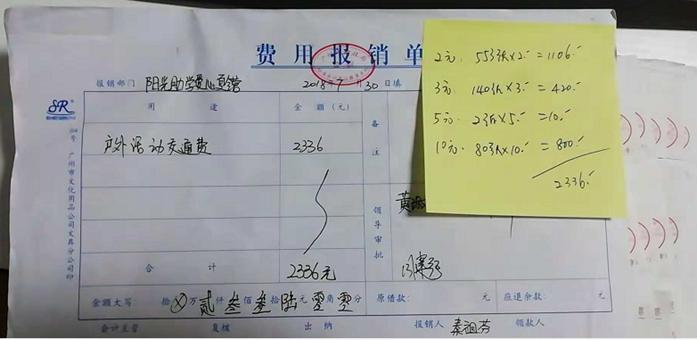 费用报销单
报销部门 阳光助学爱心夏令营 2018年7月30日填
用途 金额(元) 备注
户外活动交通费 2336
领导审批
合计 2336元
金额大写 拾⊗万贰仟叁佰叁拾陆元零角零分 原借款: 元 应退余款: 元
会计主管 复核 出纳 报销人 秦祖芬 领款人
SR
广州市文化用品公司文具分公司印
2元: 553张×2- =1106.-
3元: 140张×3- =420.-
5元: 2张×5- =10.-
10元: 80张×10- =800.-
2336.-